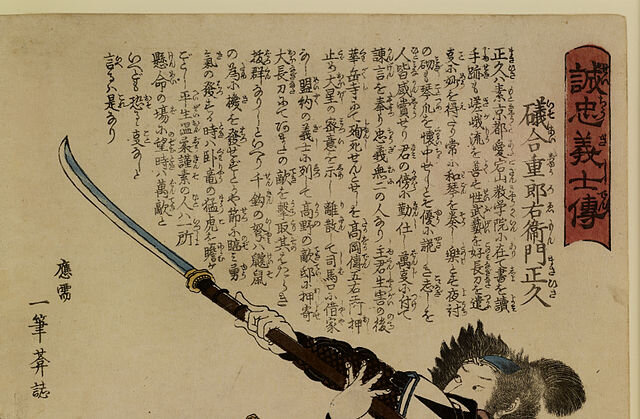 誠忠義士傳
礒合重郎右衛門正久
正久ハ素京都愛宕山教学院に在て書を讀
手跡も嵯峨流を善せ性武藝を好長刀を遣
事妙を得たり常に和琴を奏し樂しむ夜討
の砌も琴爪を懐中せしとぞ優に説き志しを
人皆感賞せり君の傍に勤仕し萬事に付て
諫言を奏し忠義無二の人なり主君生害の後
華岳寺にて殉死せんとせしを髙岡傳五右エ門押
止め大星の密意を示し離散して司馬口に借家
なし盟約の義士に列して髙野の敵邸に押寄
大長刀にてあまたの敵を撃取其はたらき
抜群なりしといへり千鈞の弩ハ鼷鼠
の為に機を發せずとかや節に臨ミ勇
氣の發する時ハ臥竜の猛虎を
ごとし平生温柔謹素の人ハ一所
懸命の場に望時ハ萬敵と
いへども恐るゝ事なしと
言るハ是なり
應需
一筆葊誌